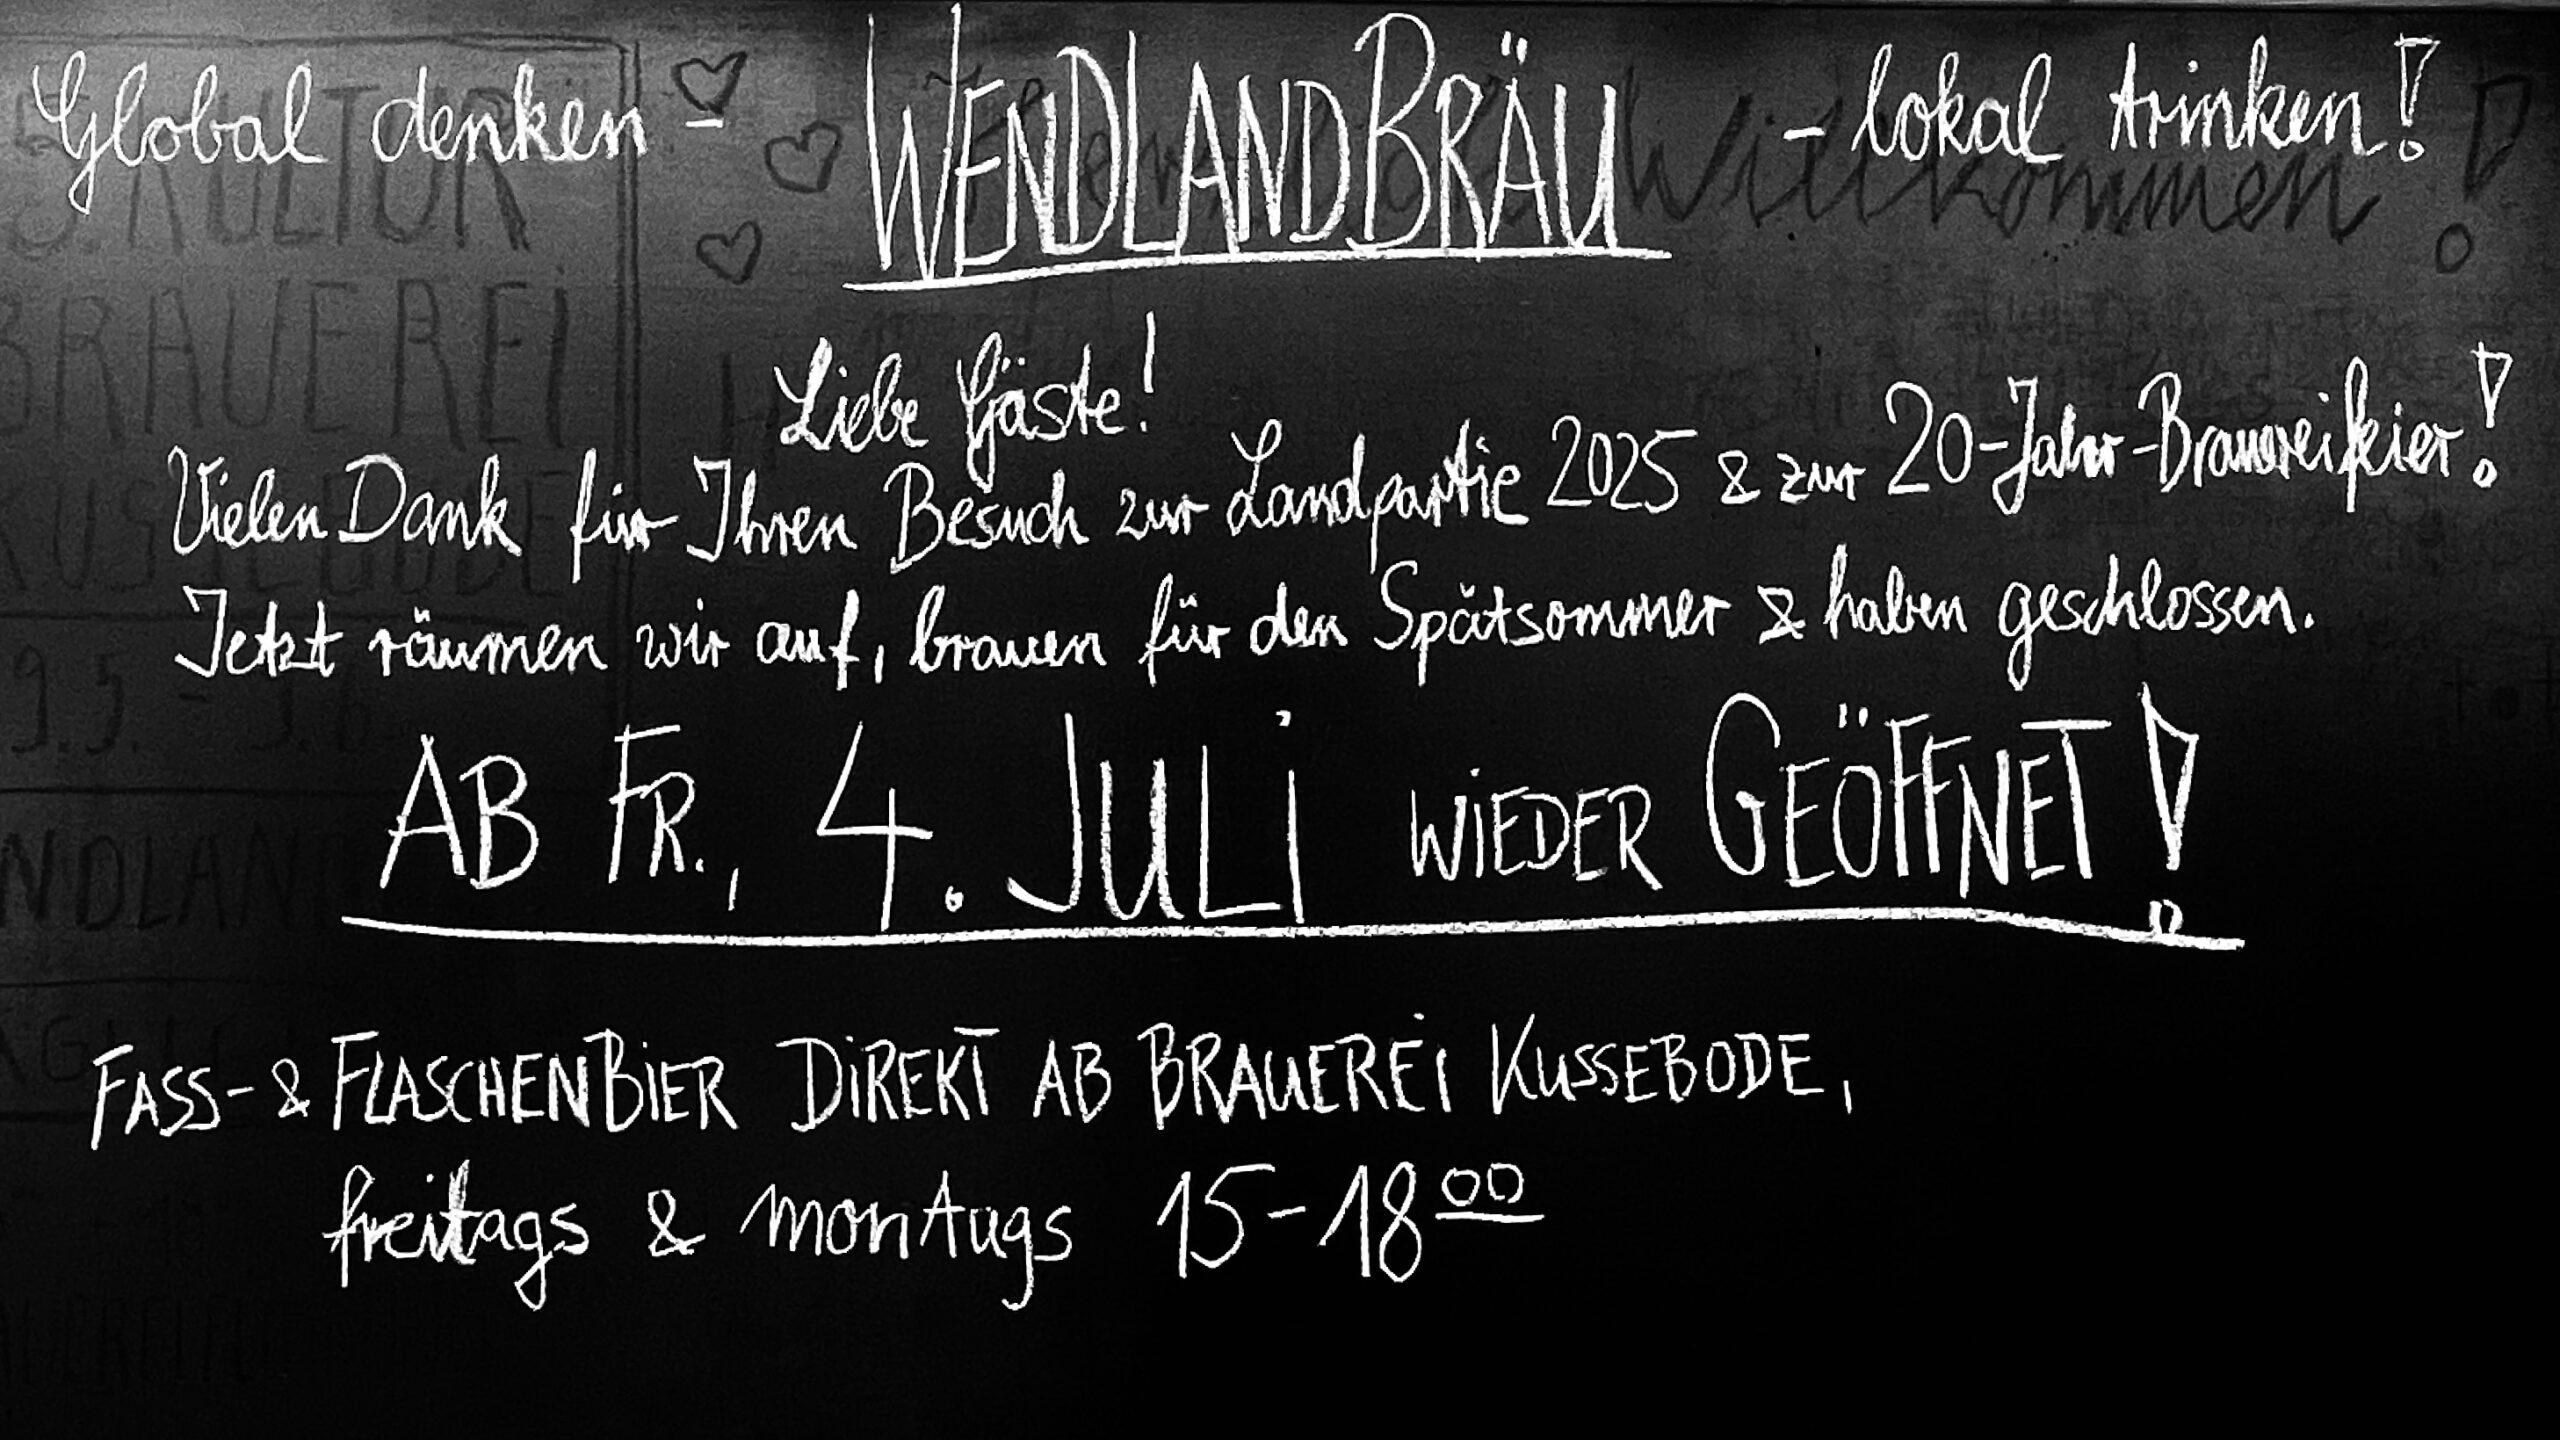 Global denken - WENDLANDBRÄU - lokal trinken!
Willkommen!
5. KULTUR
BRAUEREI
KUSSEBODE
Liebe Gäste!
Vielen Dank für Ihren Besuch zur Landpartie 2025 & zur 20-Jahr-Brauereifeier!
Jetzt räumen wir auf, brauen für den Spätsommer & haben geschlossen.
AB FR., 4. JULI WIEDER GEÖFFNET!
FASS- & FLASCHENBIER DIREKT AB BRAUEREI KUSSEBODE,
freitags & montags 15-18 00